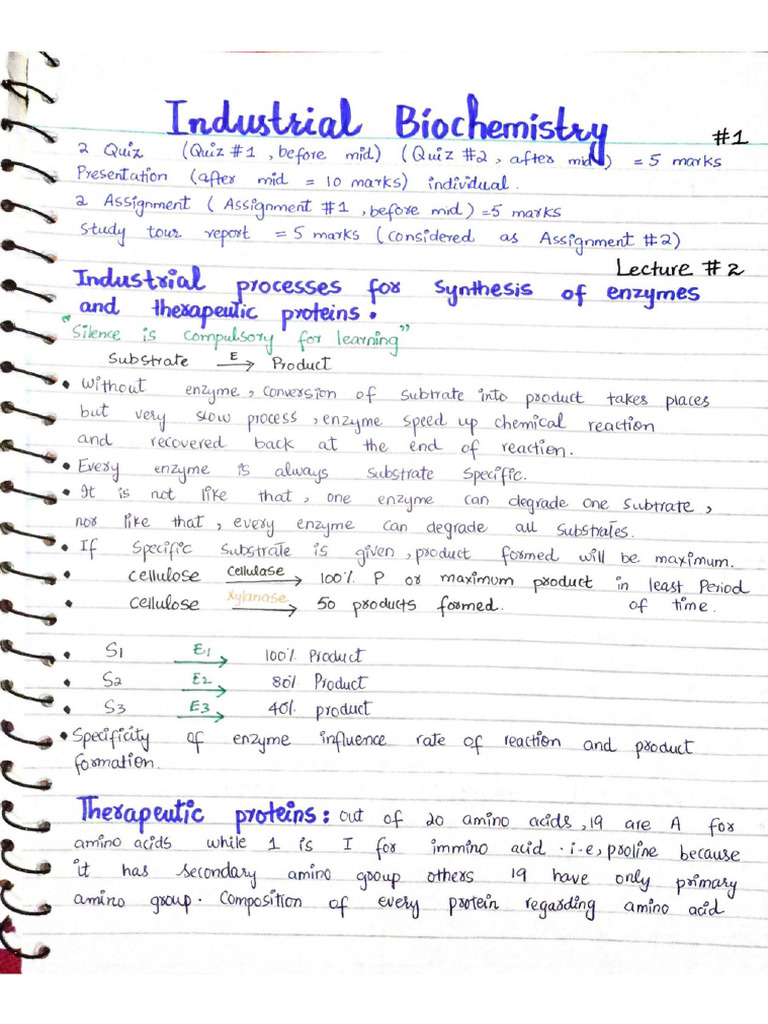 Industrial Biochemistry #1
2 Quiz (Quiz #1, before mid) (Quiz #2, after mid) = 5 marks
Presentation (after mid = 10 marks) individual.
2 Assignment (Assignment #1, before mid) = 5 marks
Study tour report = 5 marks (considered as Assignment #2)
Lecture #2
Industrial processes for synthesis of enzymes
and therapeutic proteins.
"Silence is compulsory for learning"
Substrate E → Product
• Without enzyme, conversion of subtrate into product takes places
but very slow process, enzyme speed up chemical reaction
and recovered back at the end of reaction.
• Every enzyme is always substrate specific.
• It is not like that, one enzyme can degrade one subtrate,
nor like that, every enzyme can degrade all substrates.
• If specific substrate is given, product formed will be maximum.
• cellulose cellulase → 100% P or maximum product in least Period
of time.
• cellulose xylanase → 50 products formed.
• S1 E1 → 100% Product
• S2 E2 → 80% Product
• S3 E3 → 40% product
• Specificity of enzyme influence rate of reaction and product
formation.
Therapeutic proteins: out of 20 amino acids, 19 are A for
amino acids while 1 is I for immino acid . i.e, proline because
it has secondary amino group others 19 have only primary
amino group. Composition of every protein regarding amino acid